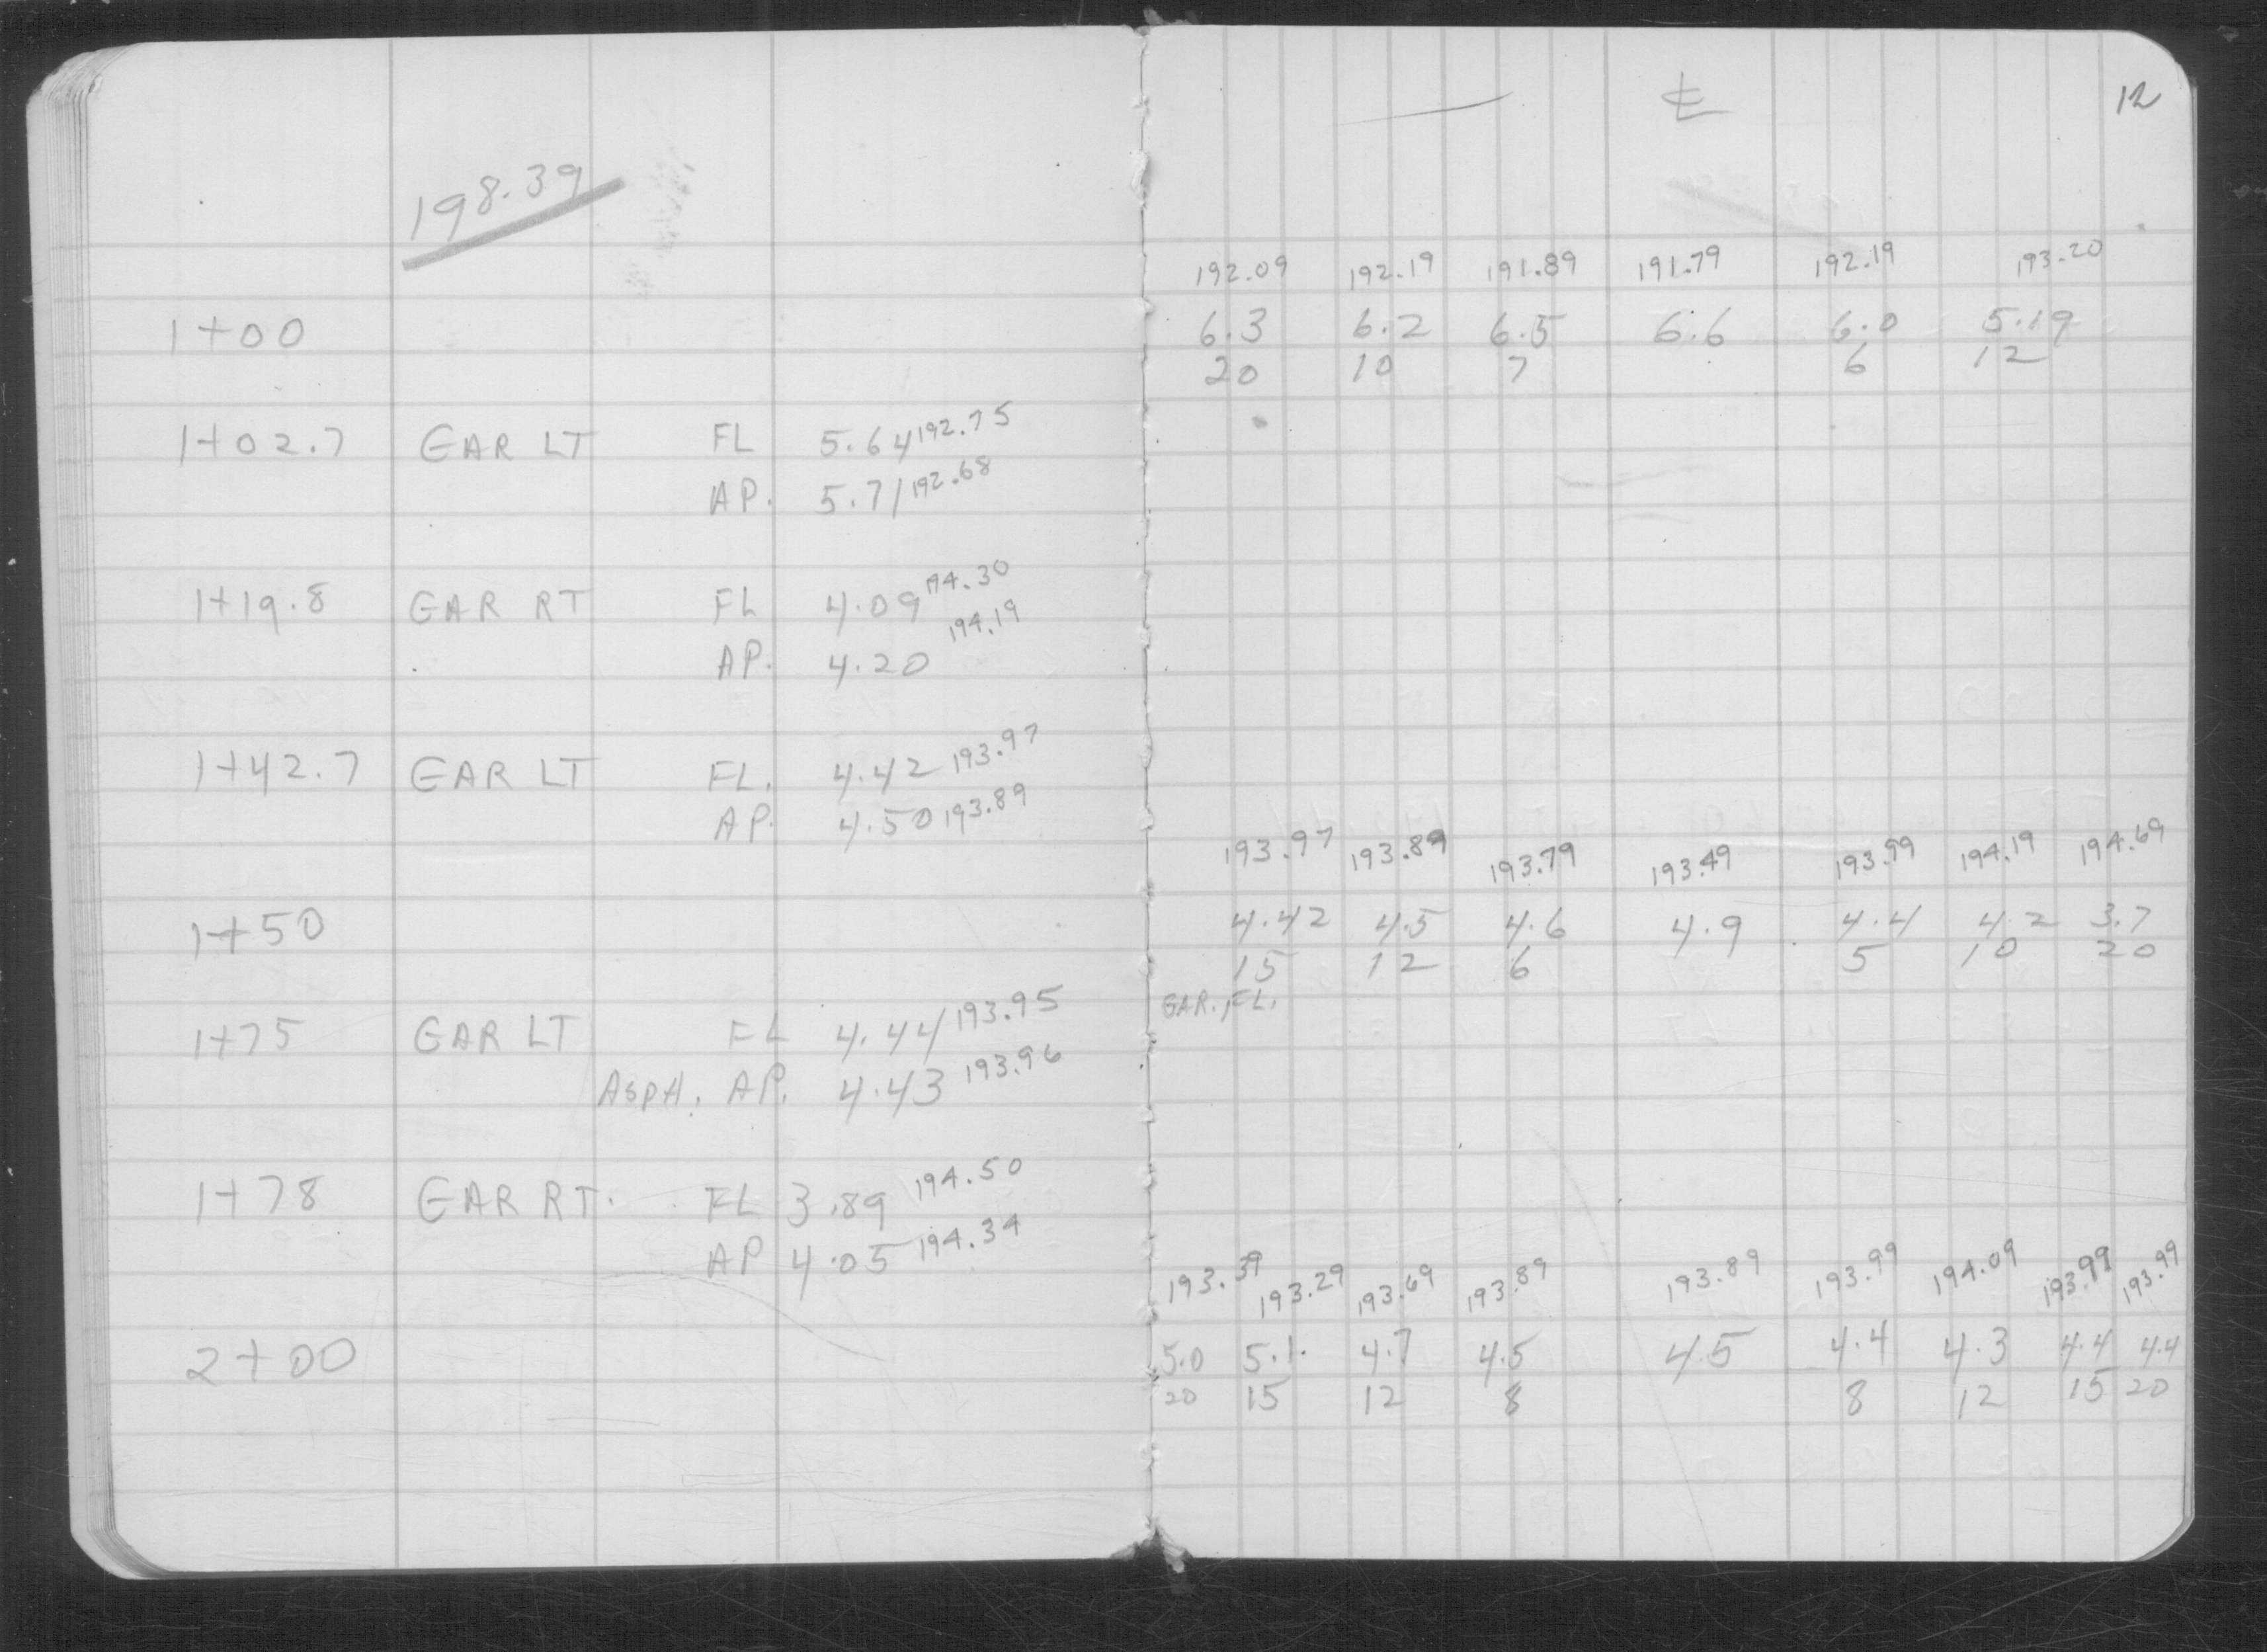 198.39
1+00
1+02.7 GAR LT FL 5.64 192.75
AP. 5.71 192.68
1+19.8 GAR RT FL 4.09 194.30
AP. 4.20 194.19
1+42.7 GAR LT FL. 4.42 193.97
AP. 4.50 193.89
1+50
1+75 GAR LT FL 4.44 193.95
ASPH. AP. 4.43 193.96
1+78 GAR RT. FL 3.89 194.50
AP 4.05 194.34
2+00
℄ 12
192.09 192.19 191.89 191.79 192.19 193.20
6.3 6.2 6.5 6.6 6.0 5.19
20 10 7 6 12
193.97 193.89 193.79 193.49 193.99 194.19 194.69
4.42 4.5 4.6 4.9 4.4 4.2 3.7
15 12 6 5 10 20
GAR. FL.
193.39 193.29 193.69 193.89 193.89 193.99 194.09 193.99 193.99
5.0 5.1 4.7 4.5 4.5 4.4 4.3 4.4 4.4
20 15 12 8 8 12 15 20